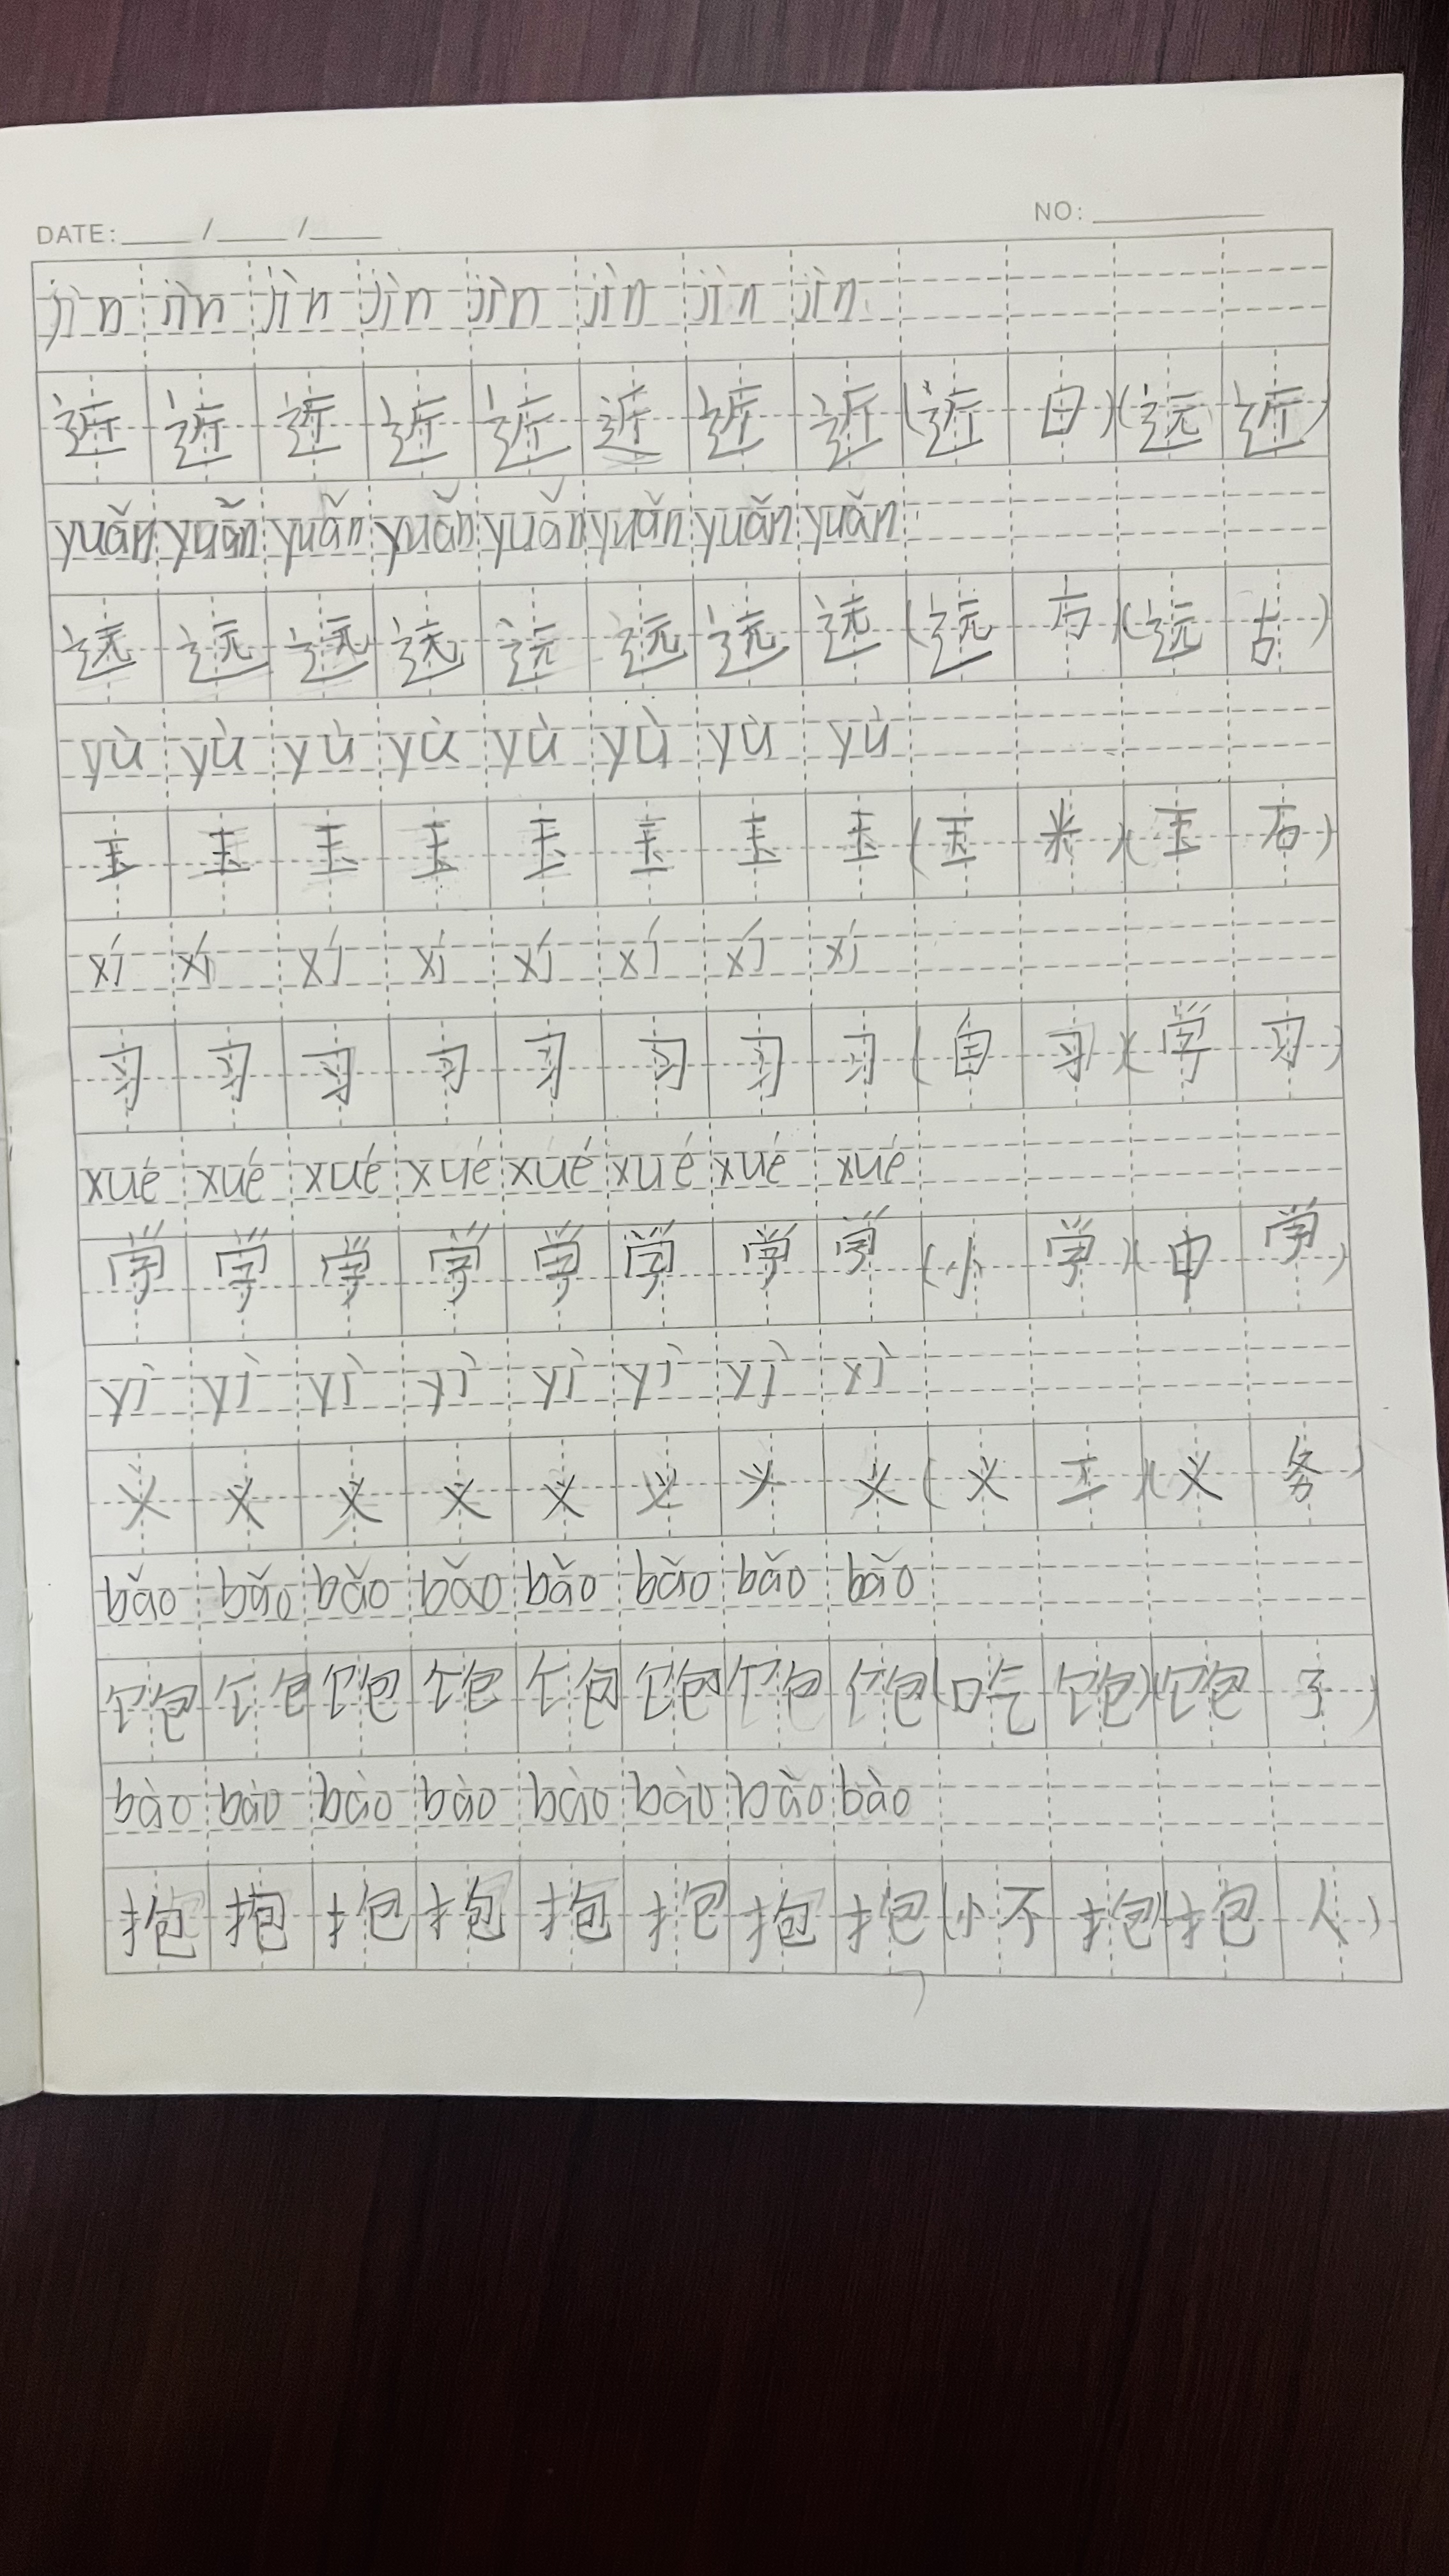 DATE: / / NO:
jìn jìn jìn jìn jìn jìn jìn jìn
近 近 近 近 近 近 近 近 (近 日) (远 近)
yuǎn yuǎn yuǎn yuǎn yuǎn yuǎn yuǎn yuǎn
远 远 远 远 远 远 远 远 (远 方) (远 古)
yù yù yù yù yù yù yù yù
玉 玉 玉 玉 玉 玉 玉 玉 (玉 米) (玉 石)
xí xí xí xí xí xí xí xí
习 习 习 习 习 习 习 习 (自 习) (学 习)
xué xué xué xué xué xué xué xué
学 学 学 学 学 学 学 学 (小 学) (中 学)
yì yì yì yì yì yì yì xì
义 义 义 义 义 义 义 义 (义 工) (义 务)
bǎo bǎo bǎo bǎo bǎo bǎo bǎo bǎo
饱 饱 饱 饱 饱 饱 饱 饱 (吃 饱) (饱 子)
bào bào bào bào bào bào bào bào
抱 抱 抱 抱 抱 抱 抱 抱 (怀 抱) (抱 人)